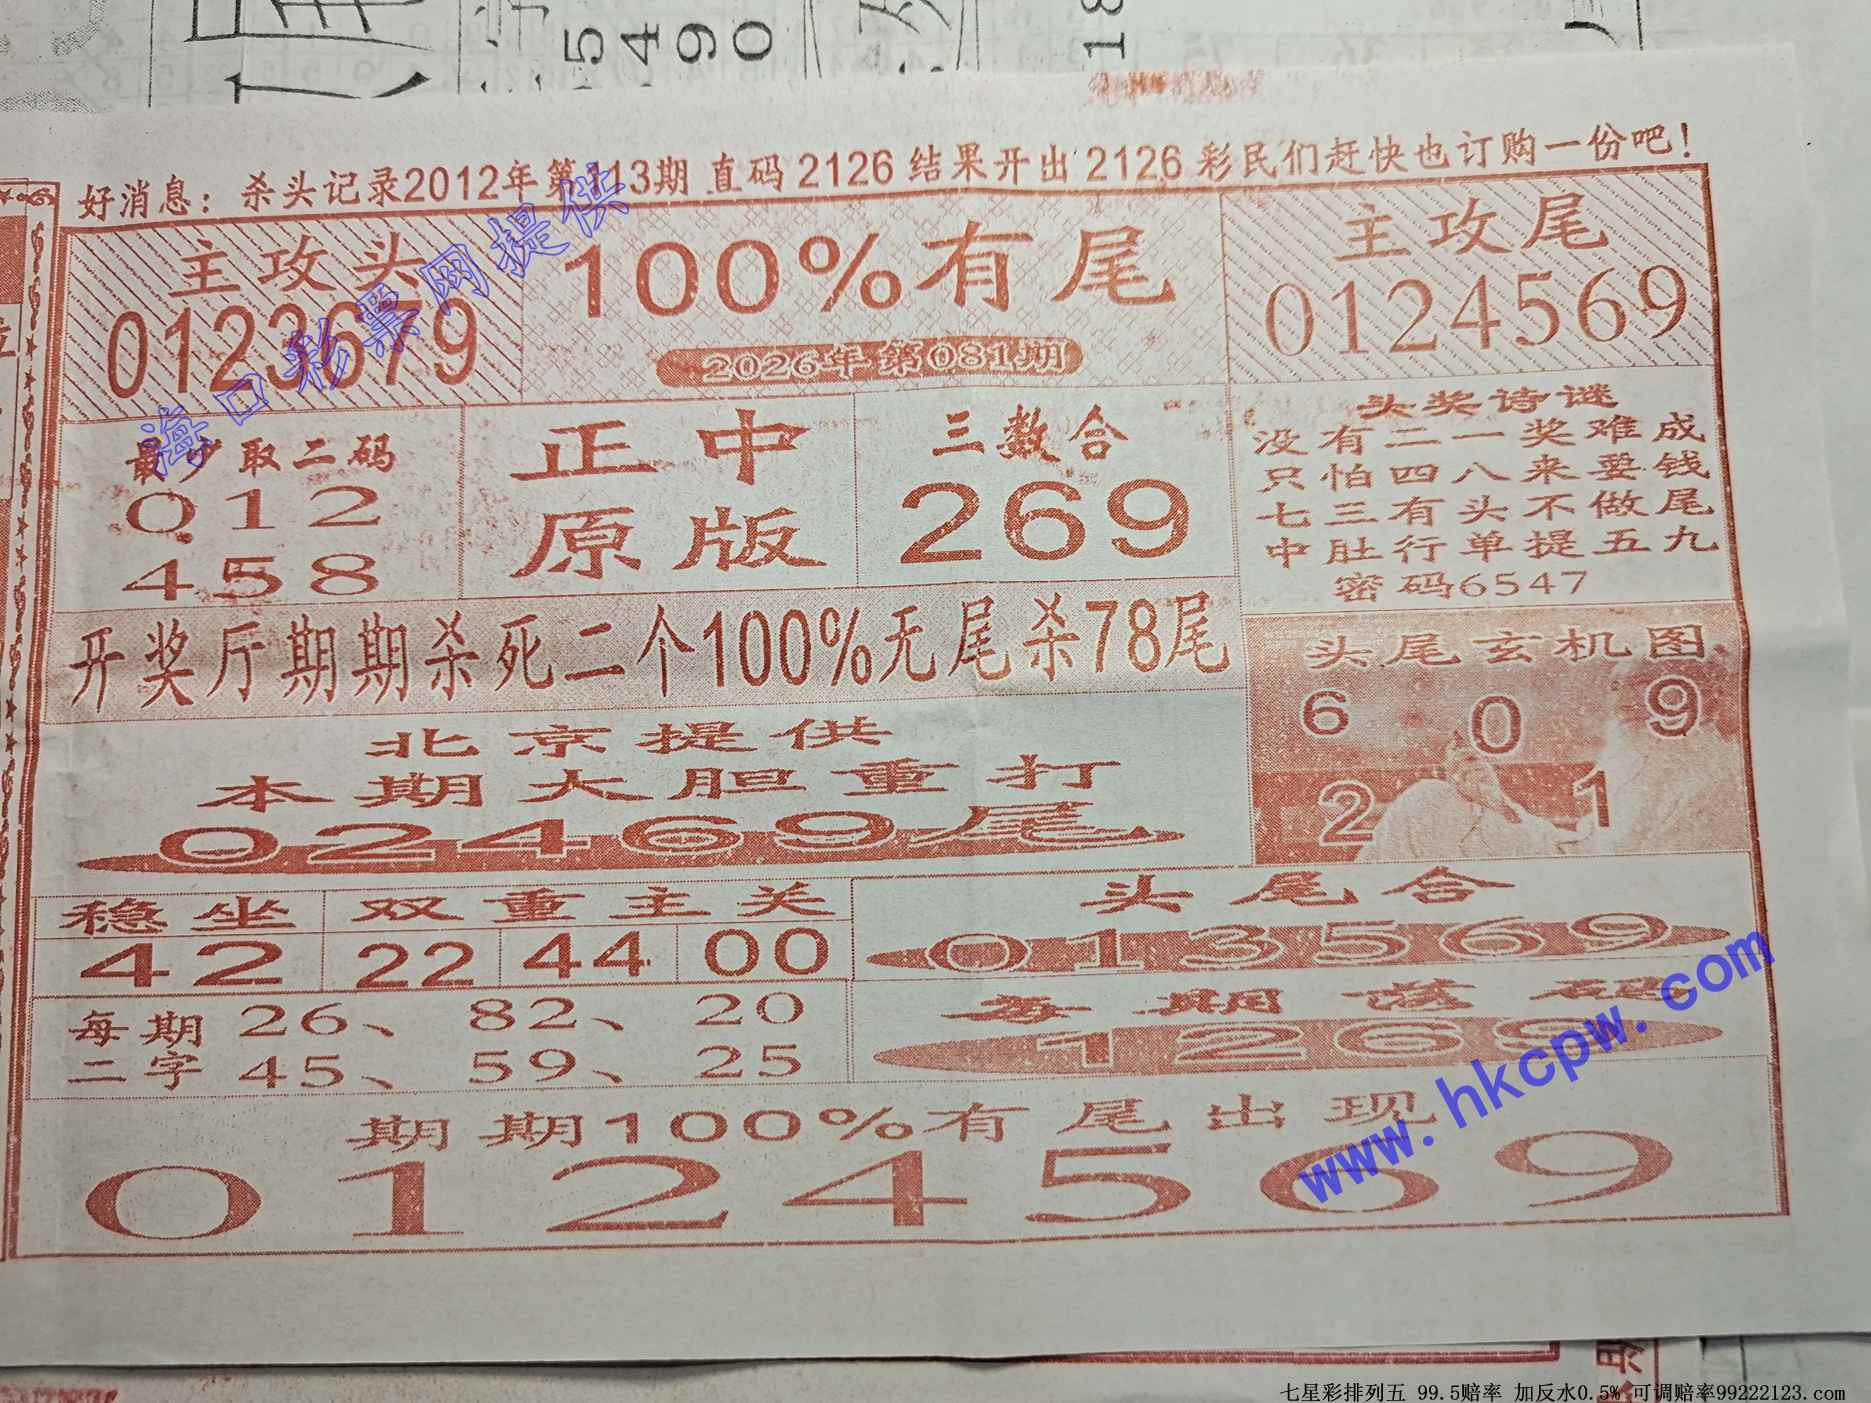 5 4 9 0
18
好消息：杀头记录2012年第113期 直码 2126 结果开出 2126 彩民们赶快也订购一份吧！
主攻头
0123679
100%有尾
2026年第081期
主攻尾
0124569
海口彩票网提供
最少取二码
012
458
正中
原版
三数合
269
头奖诗谜
没有二一奖难成
只怕四八来要钱
七三有头不做尾
中肚行单提五九
密码6547
开奖厅期期杀死二个100%无尾杀78尾
头尾玄机图
6 0 9
2 1
北京提供
本期大胆重打
02469尾
稳坐 双重主关
42 22 44 00
头尾合
013569
每期 26、 82、 20
二字 45、 59、 25
每期落码
1269
www.hkcpw.com
期期100%有尾出现
0124569
七星彩排列五 99.5赔率 加反水0.5% 可调赔率99222123.com